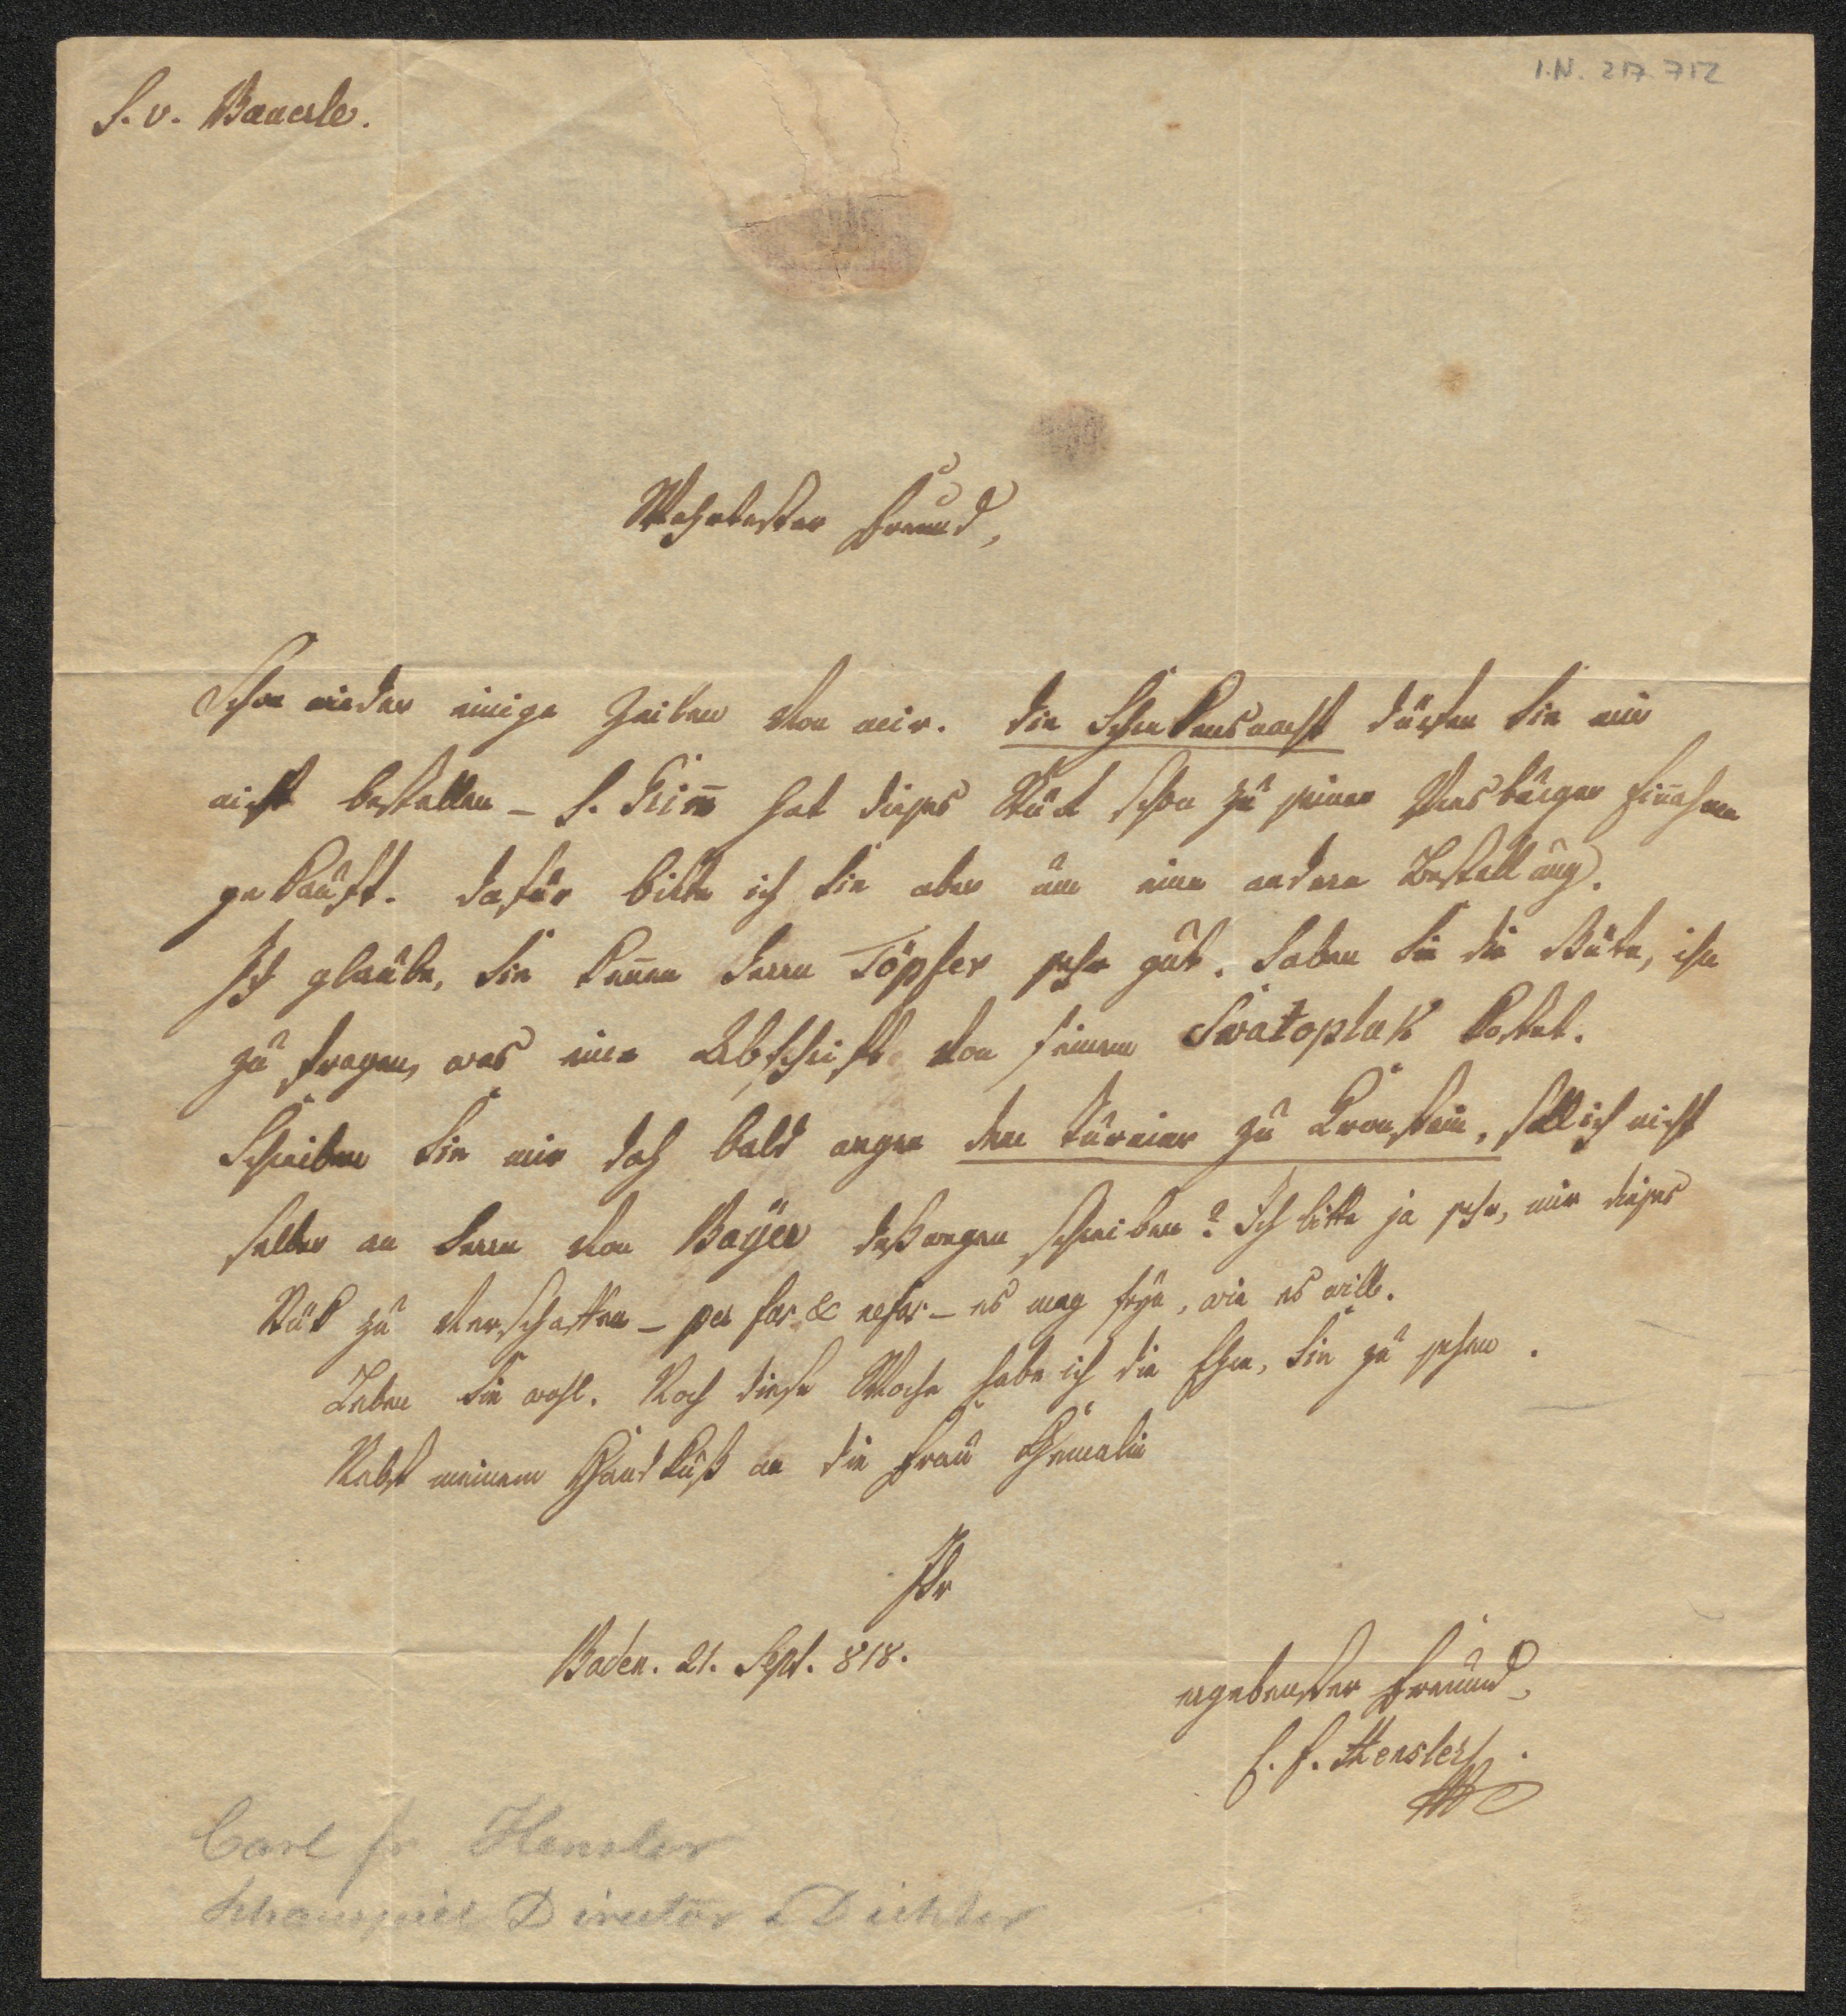 I.N. 217.712
H. v. Bäuerle.
Wehrtester Freund,
Schon wieder einige Zeilen von mir. Die Schreckensnacht dürfen Sie mir
nicht bestellen – H. hat dieses Stück schon zu seiner Presburger Einnahme
gekauft. Dafür bitte ich Sie aber um eine andere Bestellung.
Ich glaube, Sie kennen Herrn Töpfer sehr gut. Haben Sie die Güte, ihn
zu fragen, was eine Abschrift von seinem Swatopluk kostet.
Schreiben Sie mir doch bald wegen dem Turnier zu Kronstein, soll ich nicht
selber an Herrn von Bayer deßwegen schreiben? Ich bitte ja sehr, mir dieses
Stück zu verschaffen – per fas & nefas – es mag seyn, wie es will.
Leben Sie wohl. Noch diese Woche habe ich die Ehre, Sie zu sehen.
Nebst meinem Handkuß an die Frau Gemalin
Ihr
Baden. 21. Sept. 818.
ergebenster Freund
C. F. Hensler
Carl Fr Hensler
Schauspiel Director & Dichter